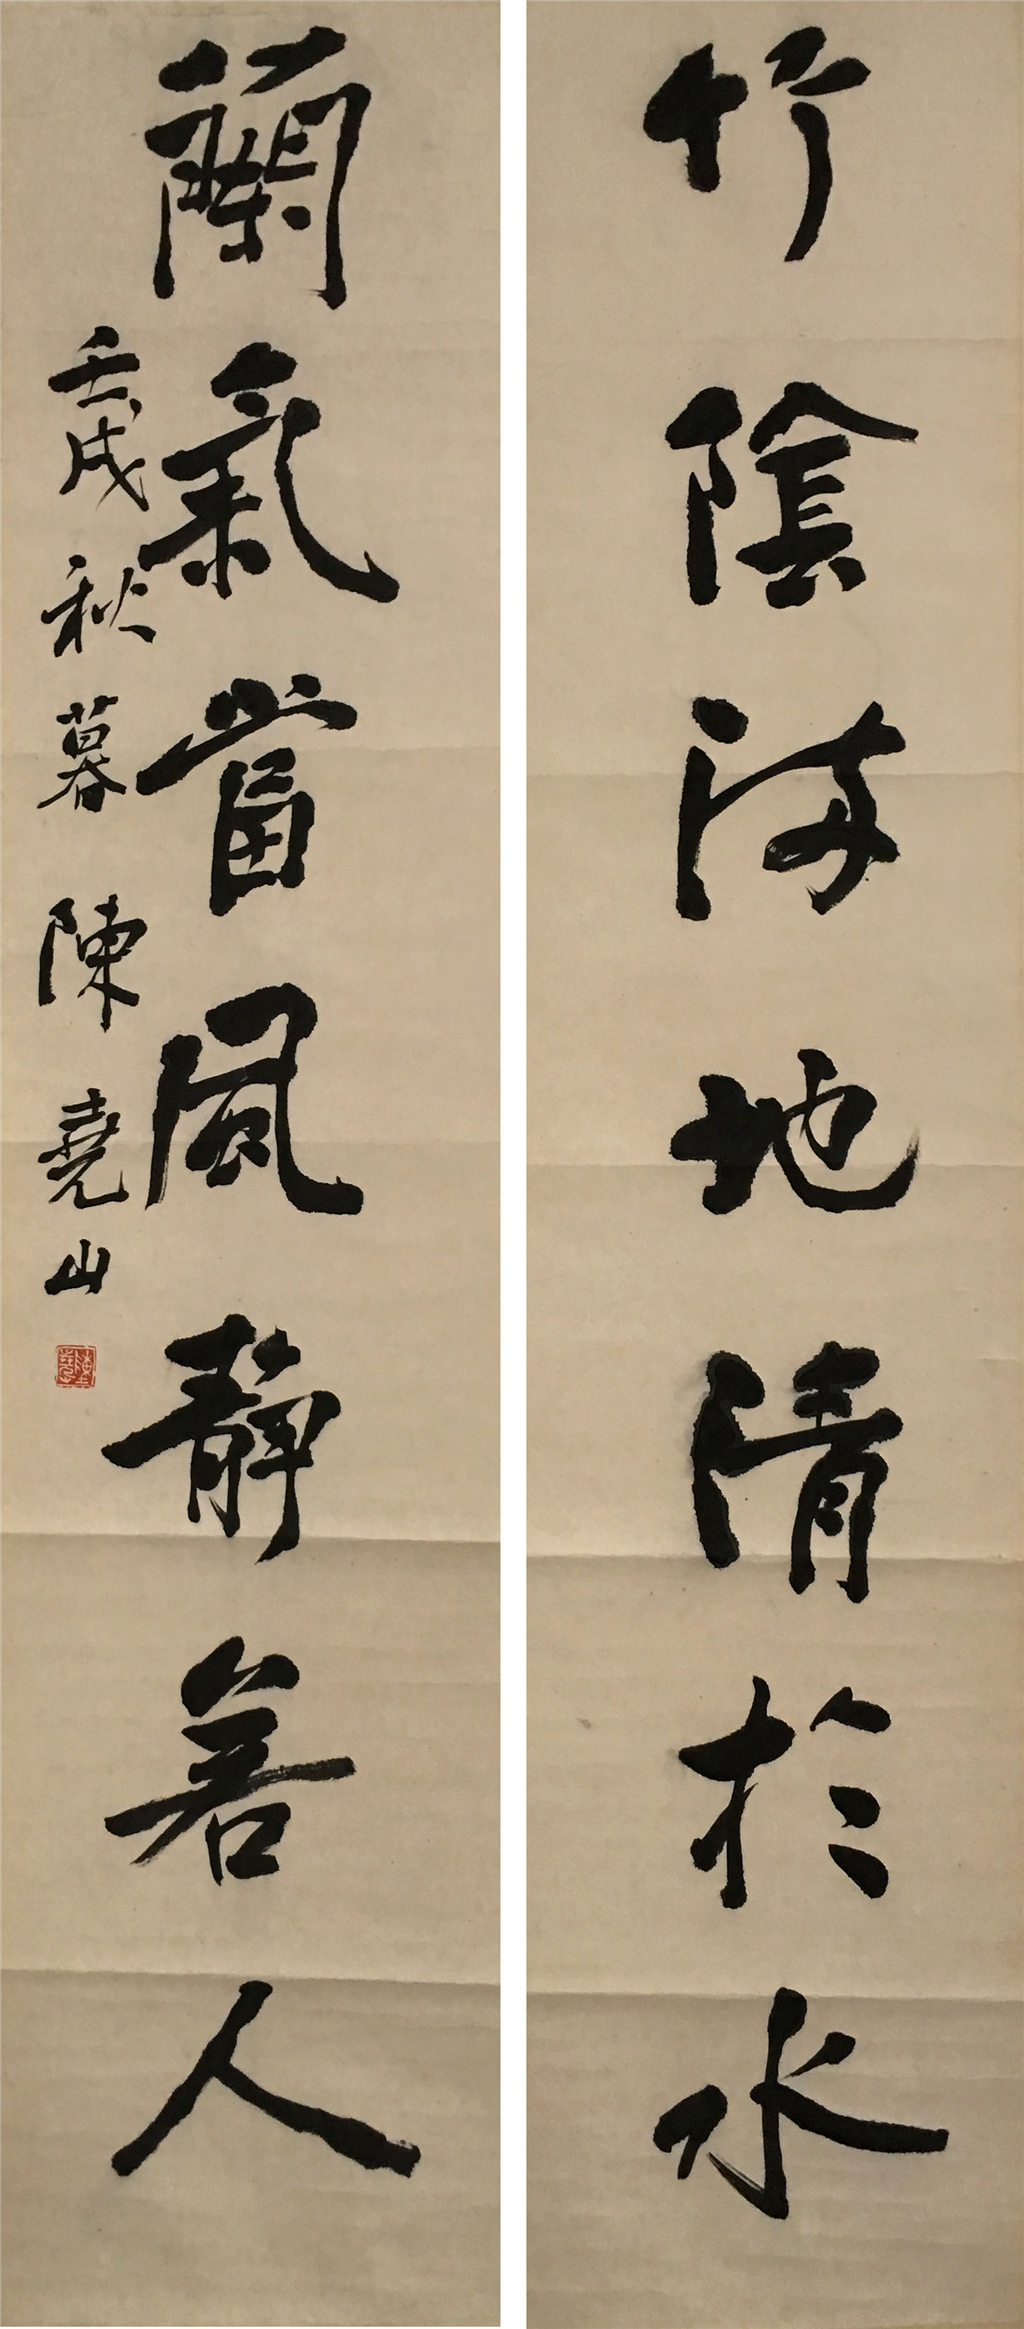 竹陰满地清於水
蘭氣當風靜若人
壬戌秋暮 陳堯山